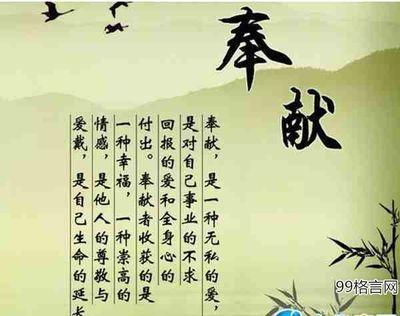 奉献
奉献，是一种无私的爱，
是对自己事业的不求
回报的爱和全身心的
付出。奉献者收获的是
一种幸福，一种崇高的
情感，是他人的尊敬与
爱戴，是自己生命的延长
99格言网